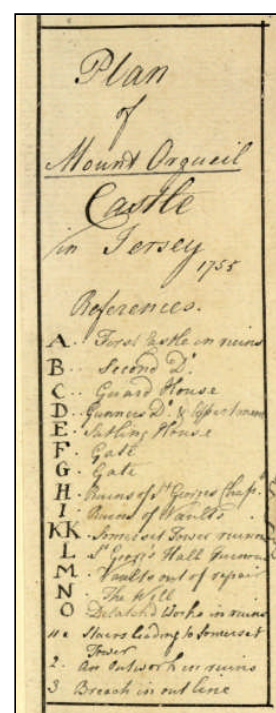 Plan
of
Mount Orgueil
Castle
in Jersey
1755
References.
A. First Castle in ruins
B. Second Do.
C Guard House
D Gunners Do. &
E. Sutling House
F. Gate
G Gate
H. Ruins of St. Georges Chap.
I. Ruins of Vaults
KK Somerset Tower ruinous
L St. George's Hall Ruinous
M. Vaults out of repair
N The Well
O Detatch'd Works in ruins
Stairs leading to Somerset
Tower
2. An Outwork in ruins
3 Breach in out line